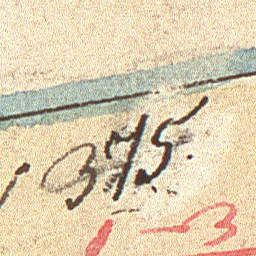 1375.
1-3